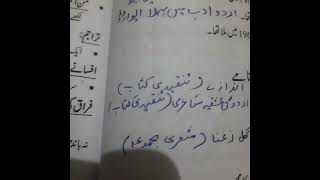 اردو ادب میں پہلا ایوارڈ
196 میں ملا تھا۔
تراجم:
ایک
افسانے
فراق
نہ باند
نامے
اندازے (تنقیدی کتاب)
اردو کی عشقیہ شاعری (تنقیدی کتاب)
گل نغمہ (شعری مجموعہ)